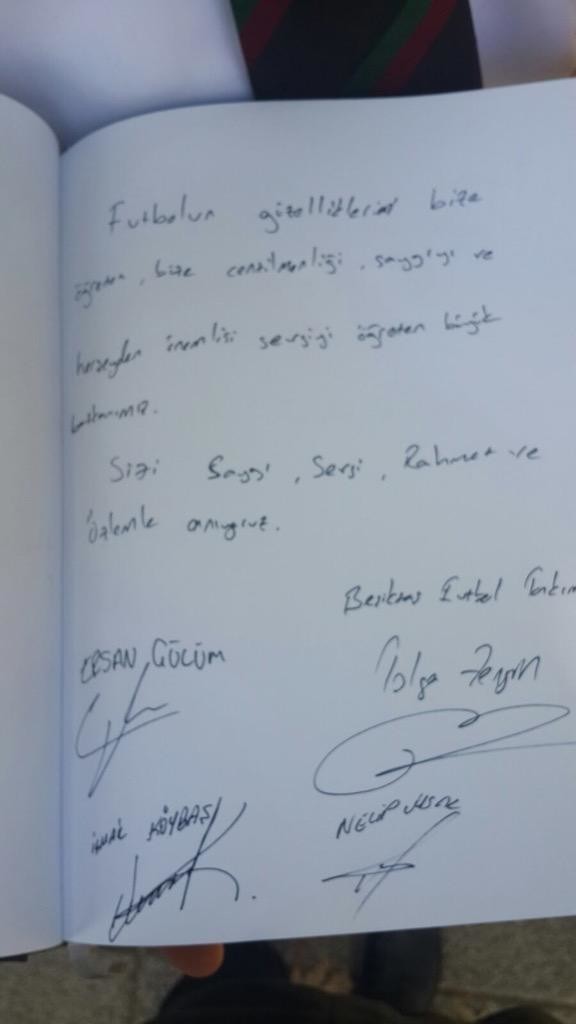 Futbolun güzelliklerini bize
öğreten, bize centilmenliği, saygıyı ve
herşeyden önemlisi sevgiyi öğreten büyük
başkanımız.
Sizi Saygı, Sevgi, Rahmet ve
Özlemle anıyoruz.
Beşiktaş Futbol Takım
ERSAN GÜLÜM
Tolga Zengin
İSMAİL KÖYBAŞI
NECİP UYSAL